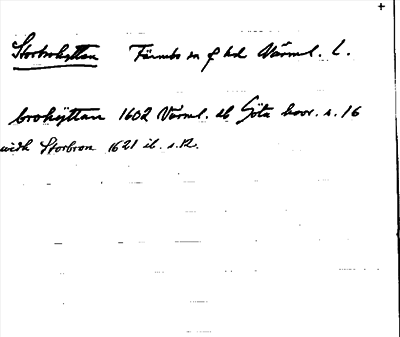 +
Storbrohyttan Färnebo sn f hd Värml. l.
brohÿttan 1602 Värml. ab Göta hovr. s. 16
widh Storbron 1621 ib. s. 12.